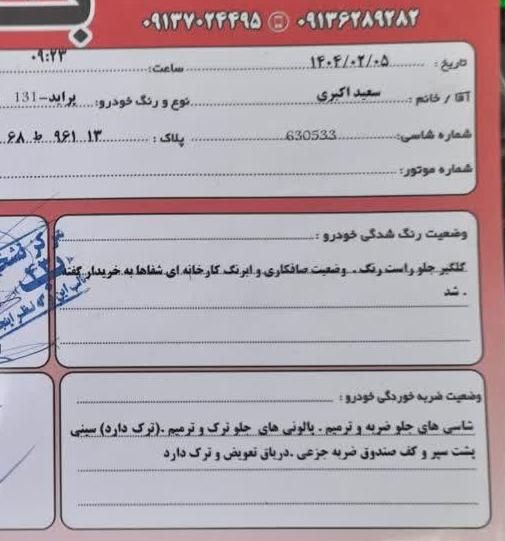 ۰۹۱۳۶۲۸۹۲۸۲ ۰۹۱۳۷۰۲۴۴۹۵
تاریخ : ۱۴۰۴/۰۲/۰۵ ساعت: ۰۹:۲۳
آقا / خانم : سعید اکبری نوع و رنگ خودرو: پراید-131
شماره شاسی: 630533 پلاک : ۱۳ ۹۶۱ ط ۶۸
شماره موتور:
وضعیت رنگ شدگی خودرو :
گلگیر جلو راست رنگ . وضعیت صافکاری و ابرنگ کارخانه ای شفاها به خریدار گفته
شد .
وضعیت ضربه خوردگی خودرو :
شاسی های جلو ضربه و ترمیم . پالونی های جلو ترک و ترمیم .(ترک دارد) سینی
پشت سپر و کف صندوق ضربه جزعی .درباق تعویض و ترک دارد